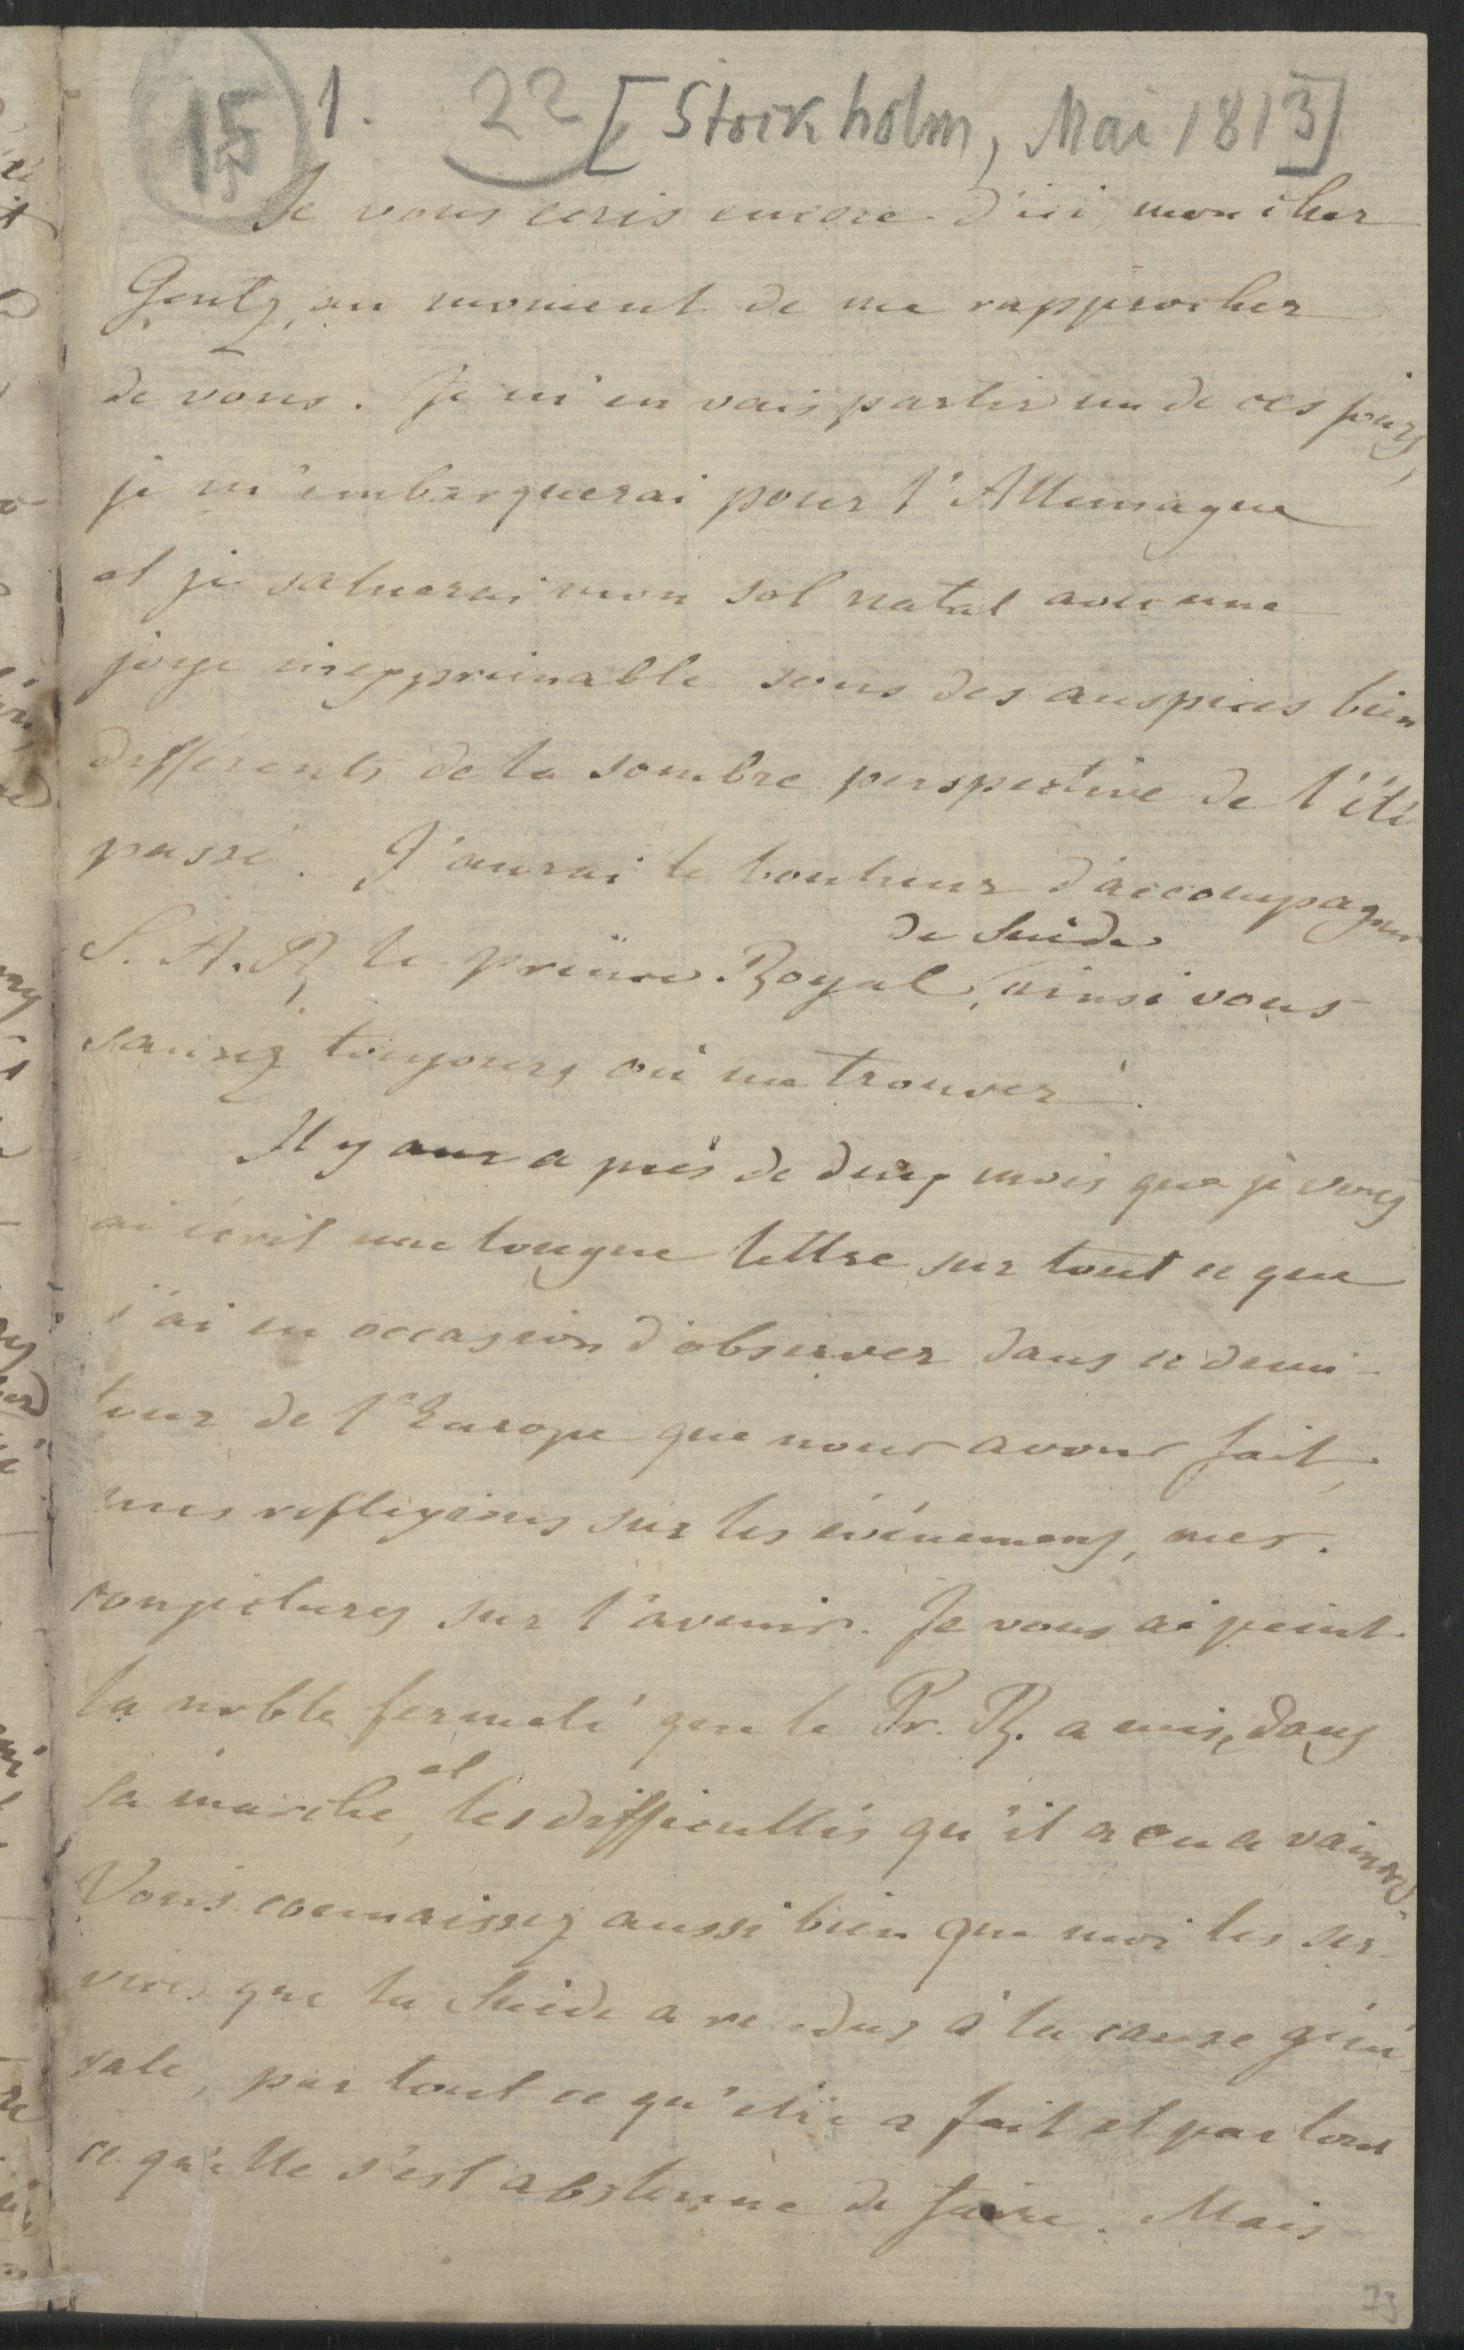 15 1. 22 [Stockholm, Mai 1813]
Je vous ecris encore d'ici mon cher
Gentz, au moment de me rapprocher
de vous. Je m'en vais partir un de ces jours,
je m'embarquerai pour l'Allemagne
et je saluerai mon sol natal avec une
joye inexprimable sous des auspices bien
différents de la sombre perspective de l'été
passé. J'aurai le bonheur d'accompagner
de Suède
S. A. R. le prince Royal, ainsi vous
saurez toujours où me trouver.
Il y aura près de deux mois que je vous
ai écrit une longue lettre sur tout ce que
j'ai eu occasion d'observer dans ce demi-
tour de l'Europe que nous avons fait,
mes reflexions sur les événemens, mes
conjectures sur l'avenir. Je vous ai peint
la noble fermeté que le Pr. R. a mise dans
et
sa marche, les difficultés qu'il a eu a vaincre.
Vous connaissez aussi bien que moi les ser-
vices que la Suède a rendus à la cause géné-
rale, par tout ce qu'elle a fait et par tout
ce qu'elle s'est abstenue de faire. Mais